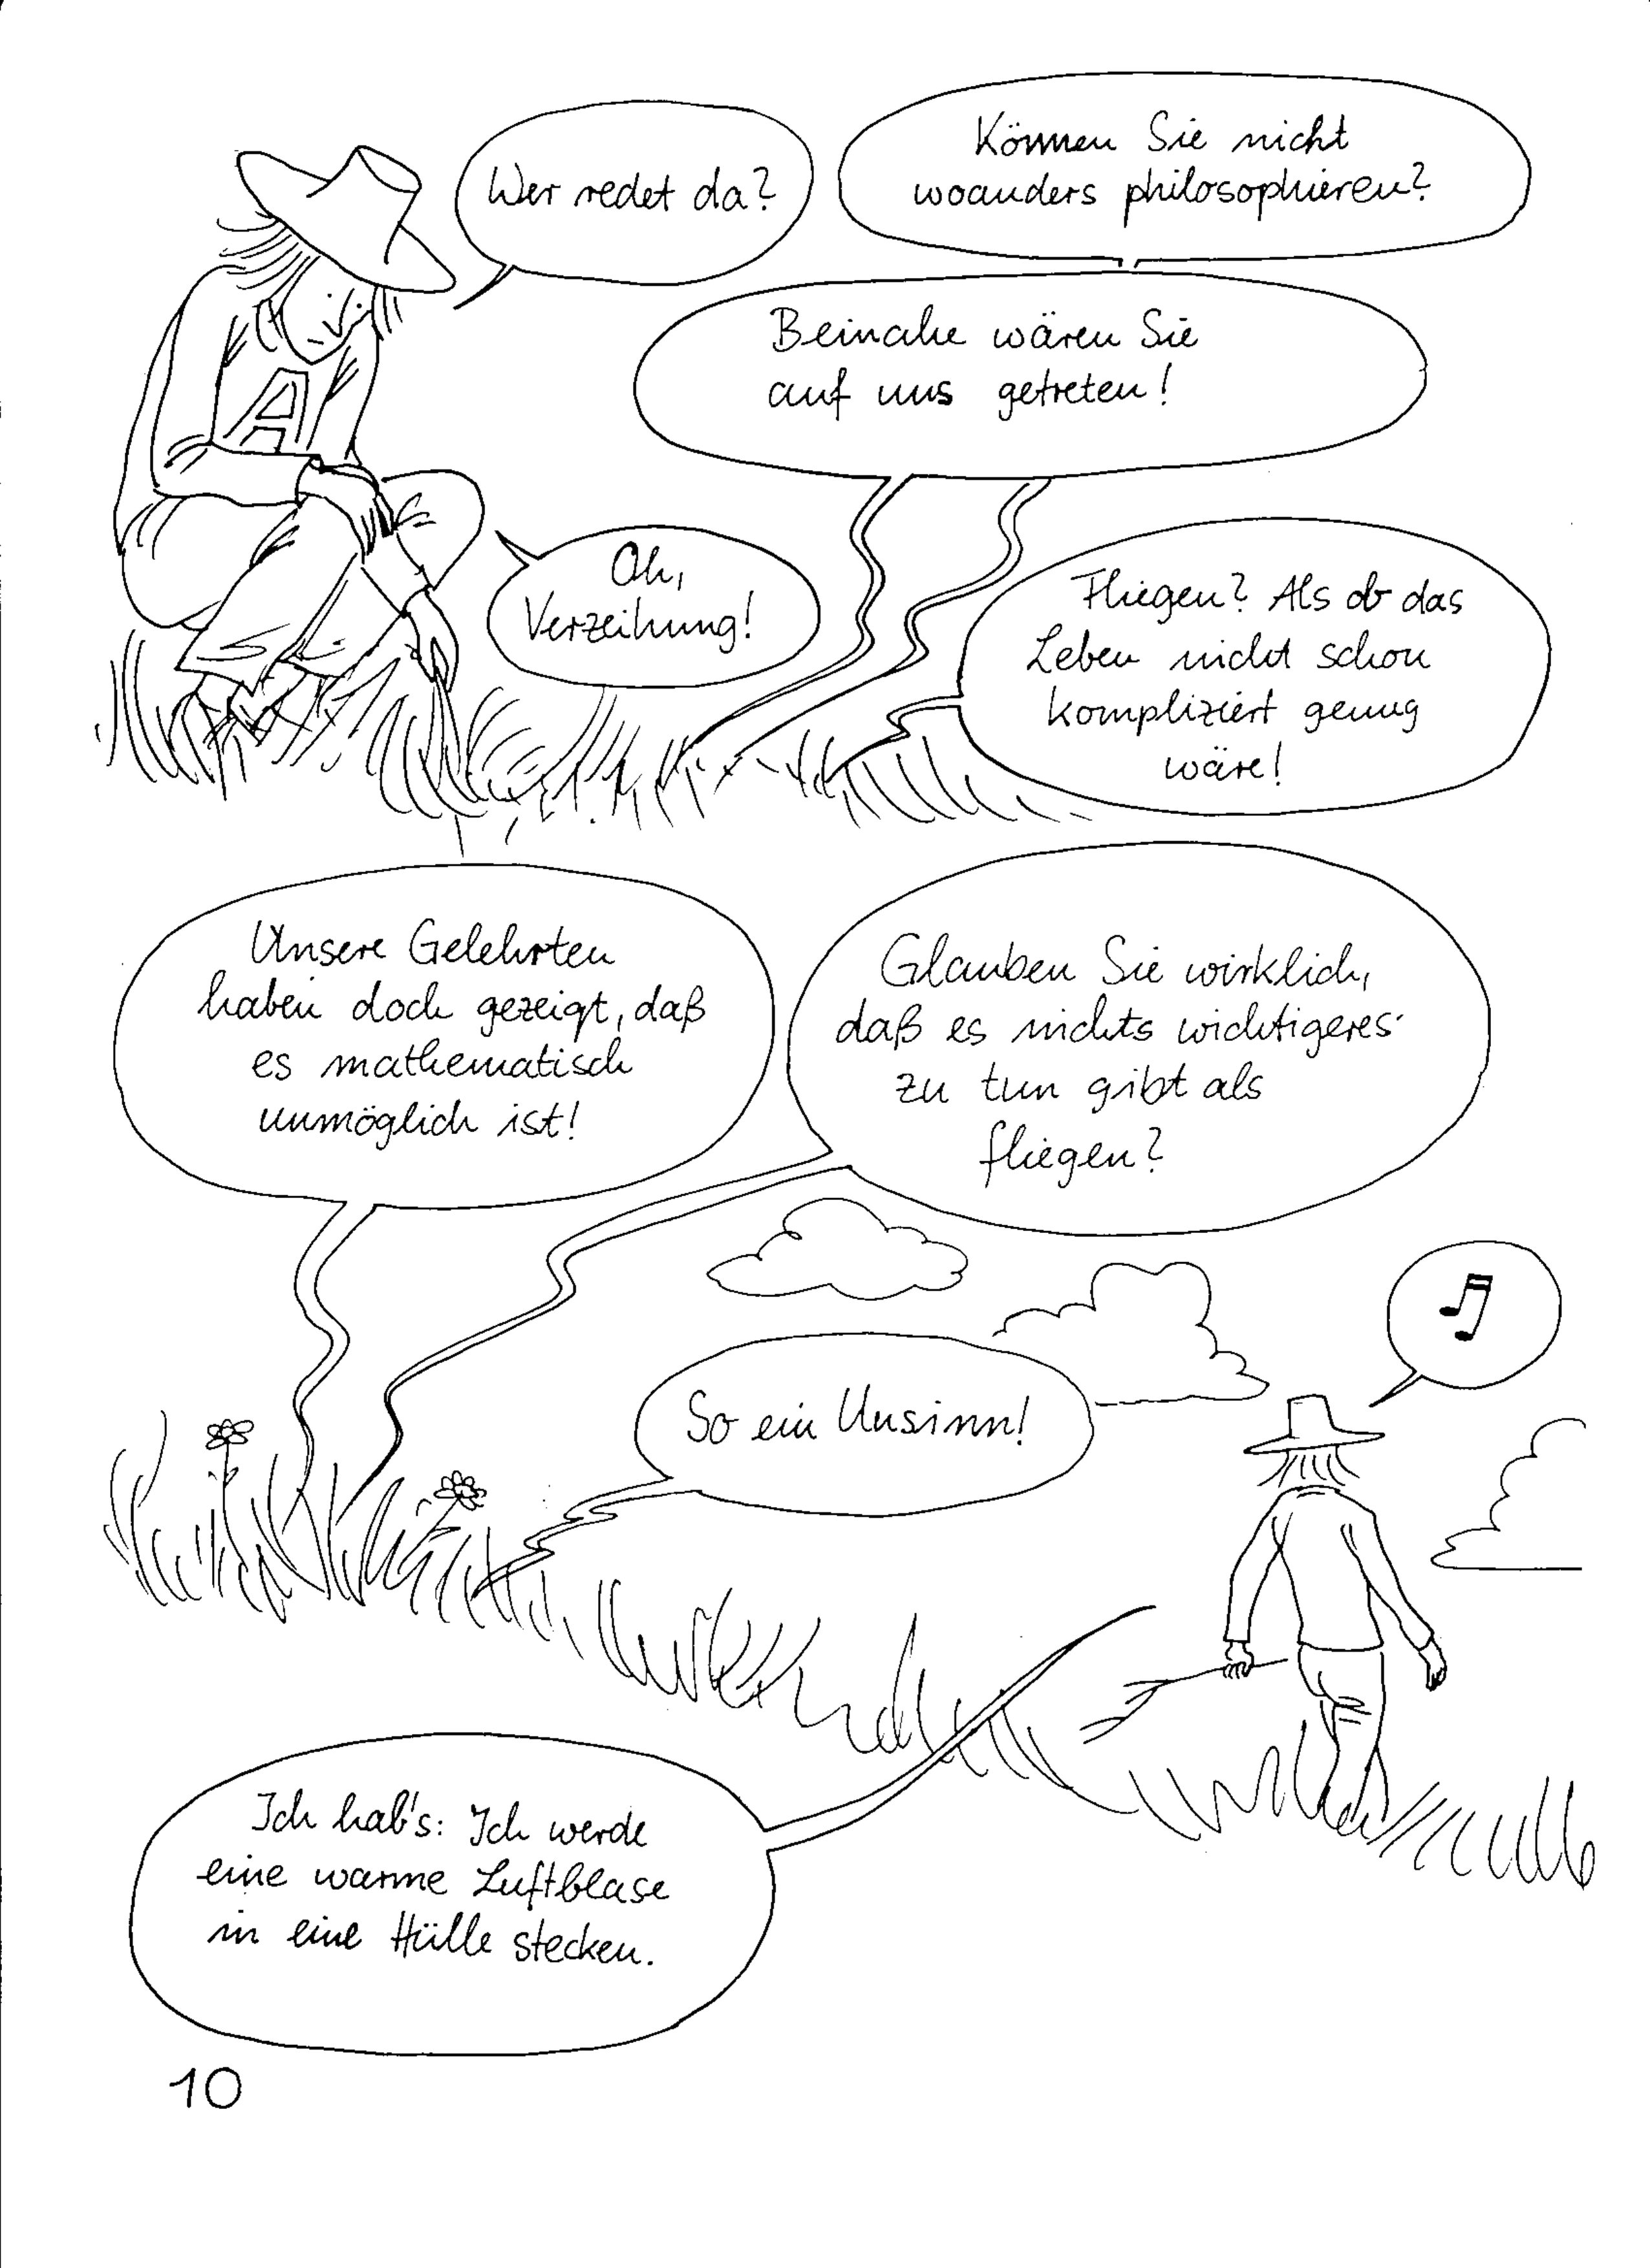 Wer redet da?
Können Sie nicht
woanders philosophieren?
Beinahe wären Sie
auf uns getreten!
Oh,
Verzeihung!
Fliegen? Als ob das
Leben nicht schon
kompliziert genug
wäre!
A
Unsere Gelehrten
haben doch gezeigt, daß
es mathematisch
unmöglich ist!
Glauben Sie wirklich,
daß es nichts wichtigeres
zu tun gibt als
fliegen?
So ein Unsinn!
Ich hab's: Ich werde
eine warme Luftblase
in eine Hülle stecken.
10